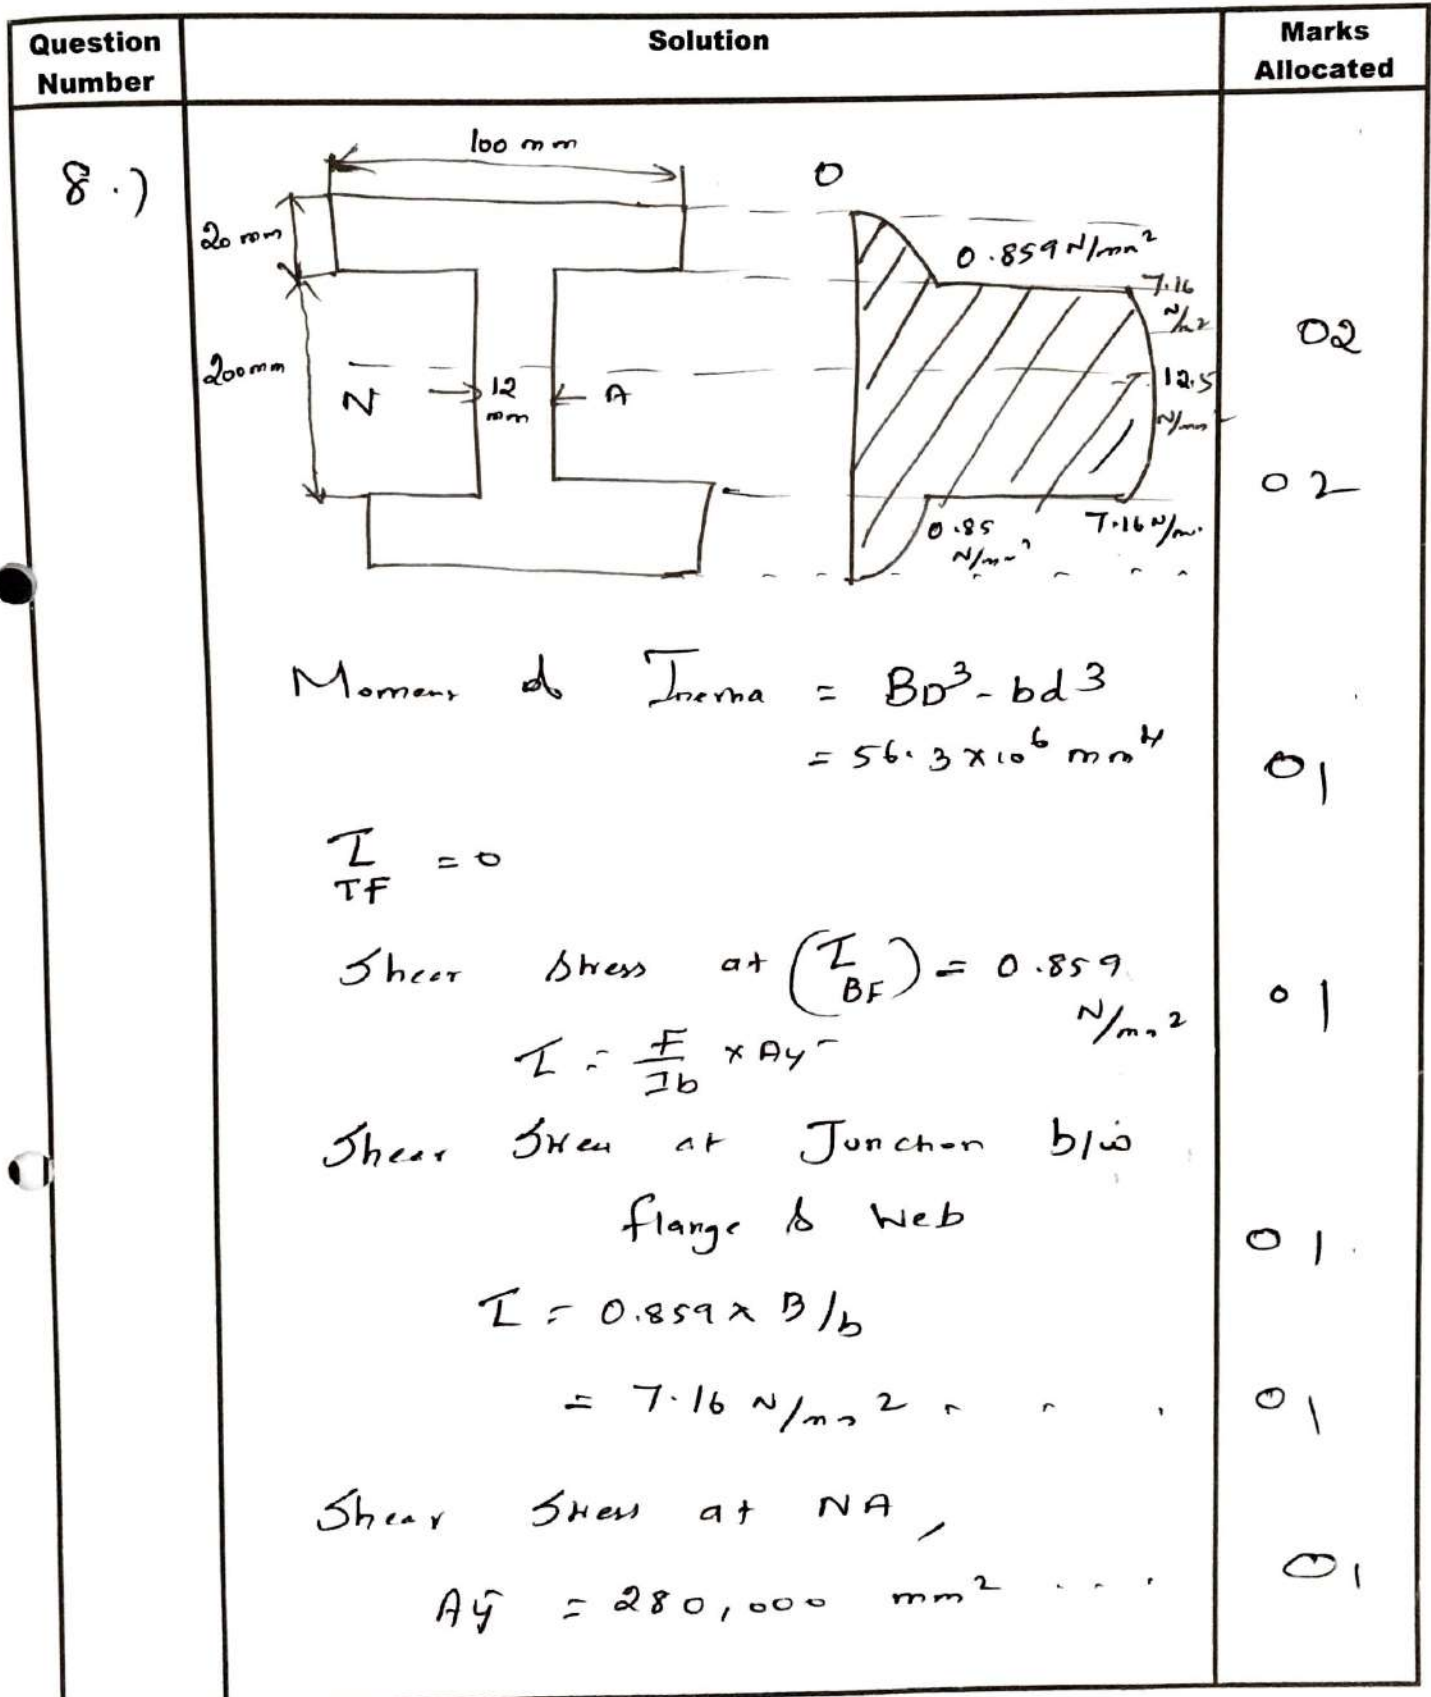 Question Number
Solution
Marks Allocated
8.)
100 mm
0
20 mm
0.859 N/mm²
7.16
N/m2
02
200 mm
N
12
mm
A
12.5
N/mm
02
0.85
N/mm²
7.16 N/m.
Moment of Inertia = BD³ - bd3
= 56.3 x 10⁶ mm⁴
01
τ TF = 0
Shear stress at (τ BF) = 0.859
N/mm²
01
τ = F/Ib x Ay-
Shear Stress at Junction b/w
flange & Web
01
τ = 0.859 x B/b
= 7.16 N/mm2
01
Shear Stress at NA,
Aȳ = 280,000 mm² ...
01